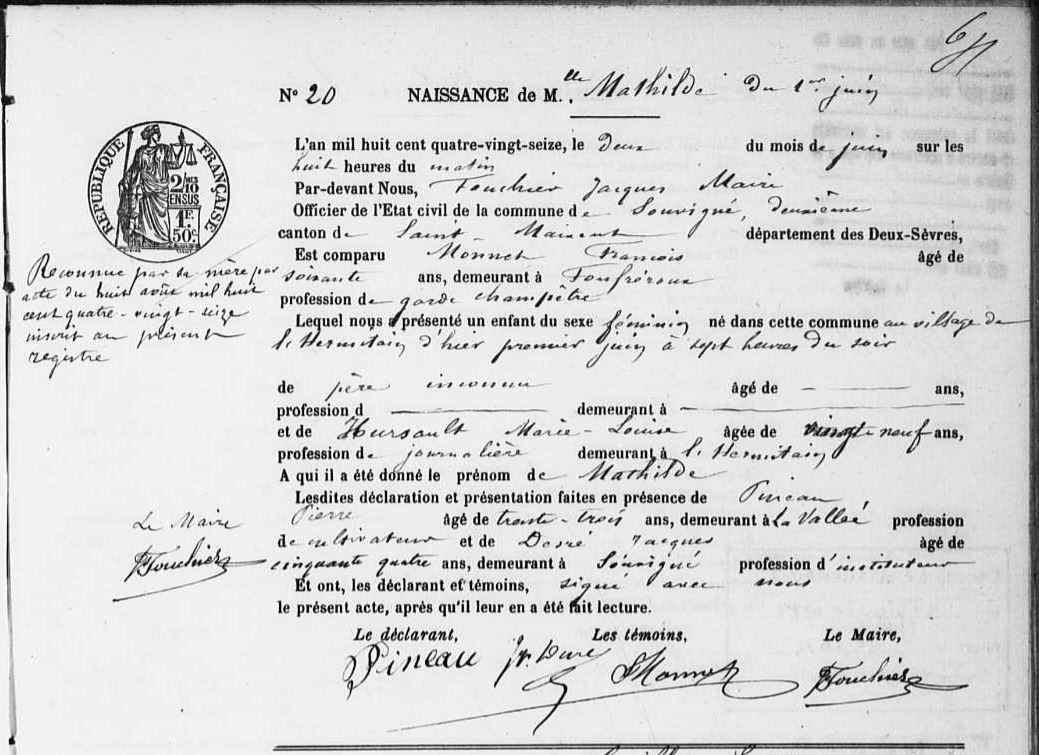 64
N° 20 NAISSANCE de M.elle Mathilde du 1er juin
RÉPUBLIQUE FRANÇAISE
2/10 EN SUS
1F. 50c.
L'an mil huit cent quatre-vingt-seize, le deux du mois de juin sur les
huit heures du matin
Par-devant Nous, Fouchier Jacques Maire
Officier de l'Etat civil de la commune de Souvigné, deuxième
canton de Saint-Maixent département des Deux-Sèvres,
Est comparu Monnet François âgé de
soixante ans, demeurant à Fonfréroux
profession de garde champêtre
Lequel nous a présenté un enfant du sexe féminin né dans cette commune au village de
l'Hermitain d'hier premier juin à sept heures du soir
de père inconnu âgé de ans,
profession d demeurant à
et de Hursault Marie-Louise âgée de vingt neuf ans,
profession de journalière demeurant à l'Hermitain
A qui il a été donné le prénom de Mathilde
Lesdites déclaration et présentation faites en présence de Pineau
Pierre âgé de trente-trois ans, demeurant à La Vallée, profession
de cultivateur et de Jacques âgé de
cinquante quatre ans, demeurant à Souvigné profession d'instituteur
Et ont, les déclarant et témoins, signé avec nous
le présent acte, après qu'il leur en a été fait lecture.
Le déclarant, Les témoins, Le Maire,
Pineau Monnet Fouchier
Reconnue par sa mère par
acte du huit août mil huit
cent quatre-vingt-seize
inscrit au présent
registre
Le Maire
Fouchier